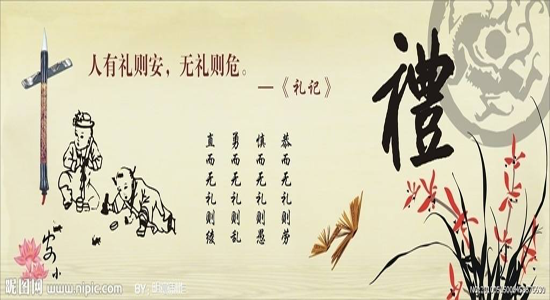 人有礼则安，无礼则危。
—《礼记》
禮
恭而无礼则劳
慎而无礼则愚
勇而无礼则乱
直而无礼则绫
昵图网 www.nipic.com
BY: